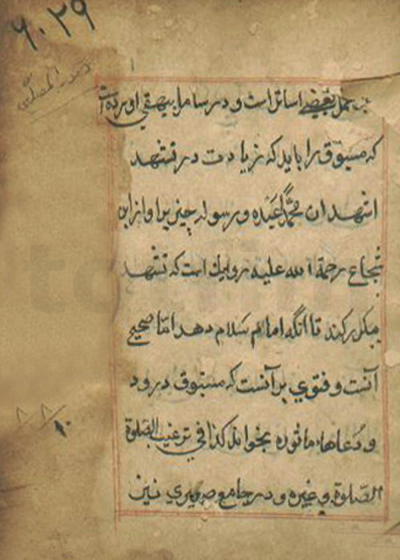 ۶۰۲۹
بعضے اساتذ است و در شامل بیهقی آورده است
که مسبوق را باید که زیادت در تشهد
اشهد ان محمدا عبده و رسوله چیزیرا و از ابن
شجاع رحمة الله علیه روایت است که تشهد
مکرر کند تا آنگه امام سلام دهد اما صحیح
آنست و فتوی بر آنست که مسبوق درود
و دعاهاء ماثوره بخواند کذا فی ترغیب الصلوة
الصلوة و غیره و در جامع صغیری نیز